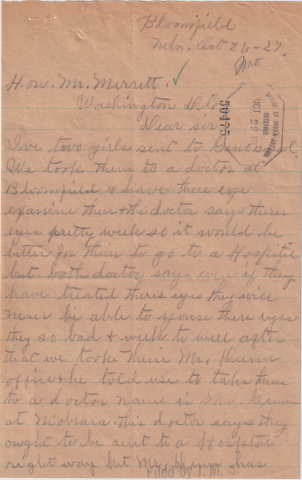 Bloomfield
Nebr. Oct 26-27.
Hon. Mr. Merrett.
Washington D.C.
Dear sir
I've two girls sent to Genoa
We took them to a doctor at
Bloomfield & have there eye
examine then & the doctor says theres
eyes pretty week so it would be
better for them to go to a Hospital
but both doctor says even if they
have treated theres eyes they will
never be able to yourse there eyes
they so bad & week to week after
that we tooke them Mr.
office & he told use to take them
to a doctor name is
at Niobrara this doctor says they
ought to be sent to a Hospital
right way but Mr. has
50475
OCT 29
Filed by J. M. S.